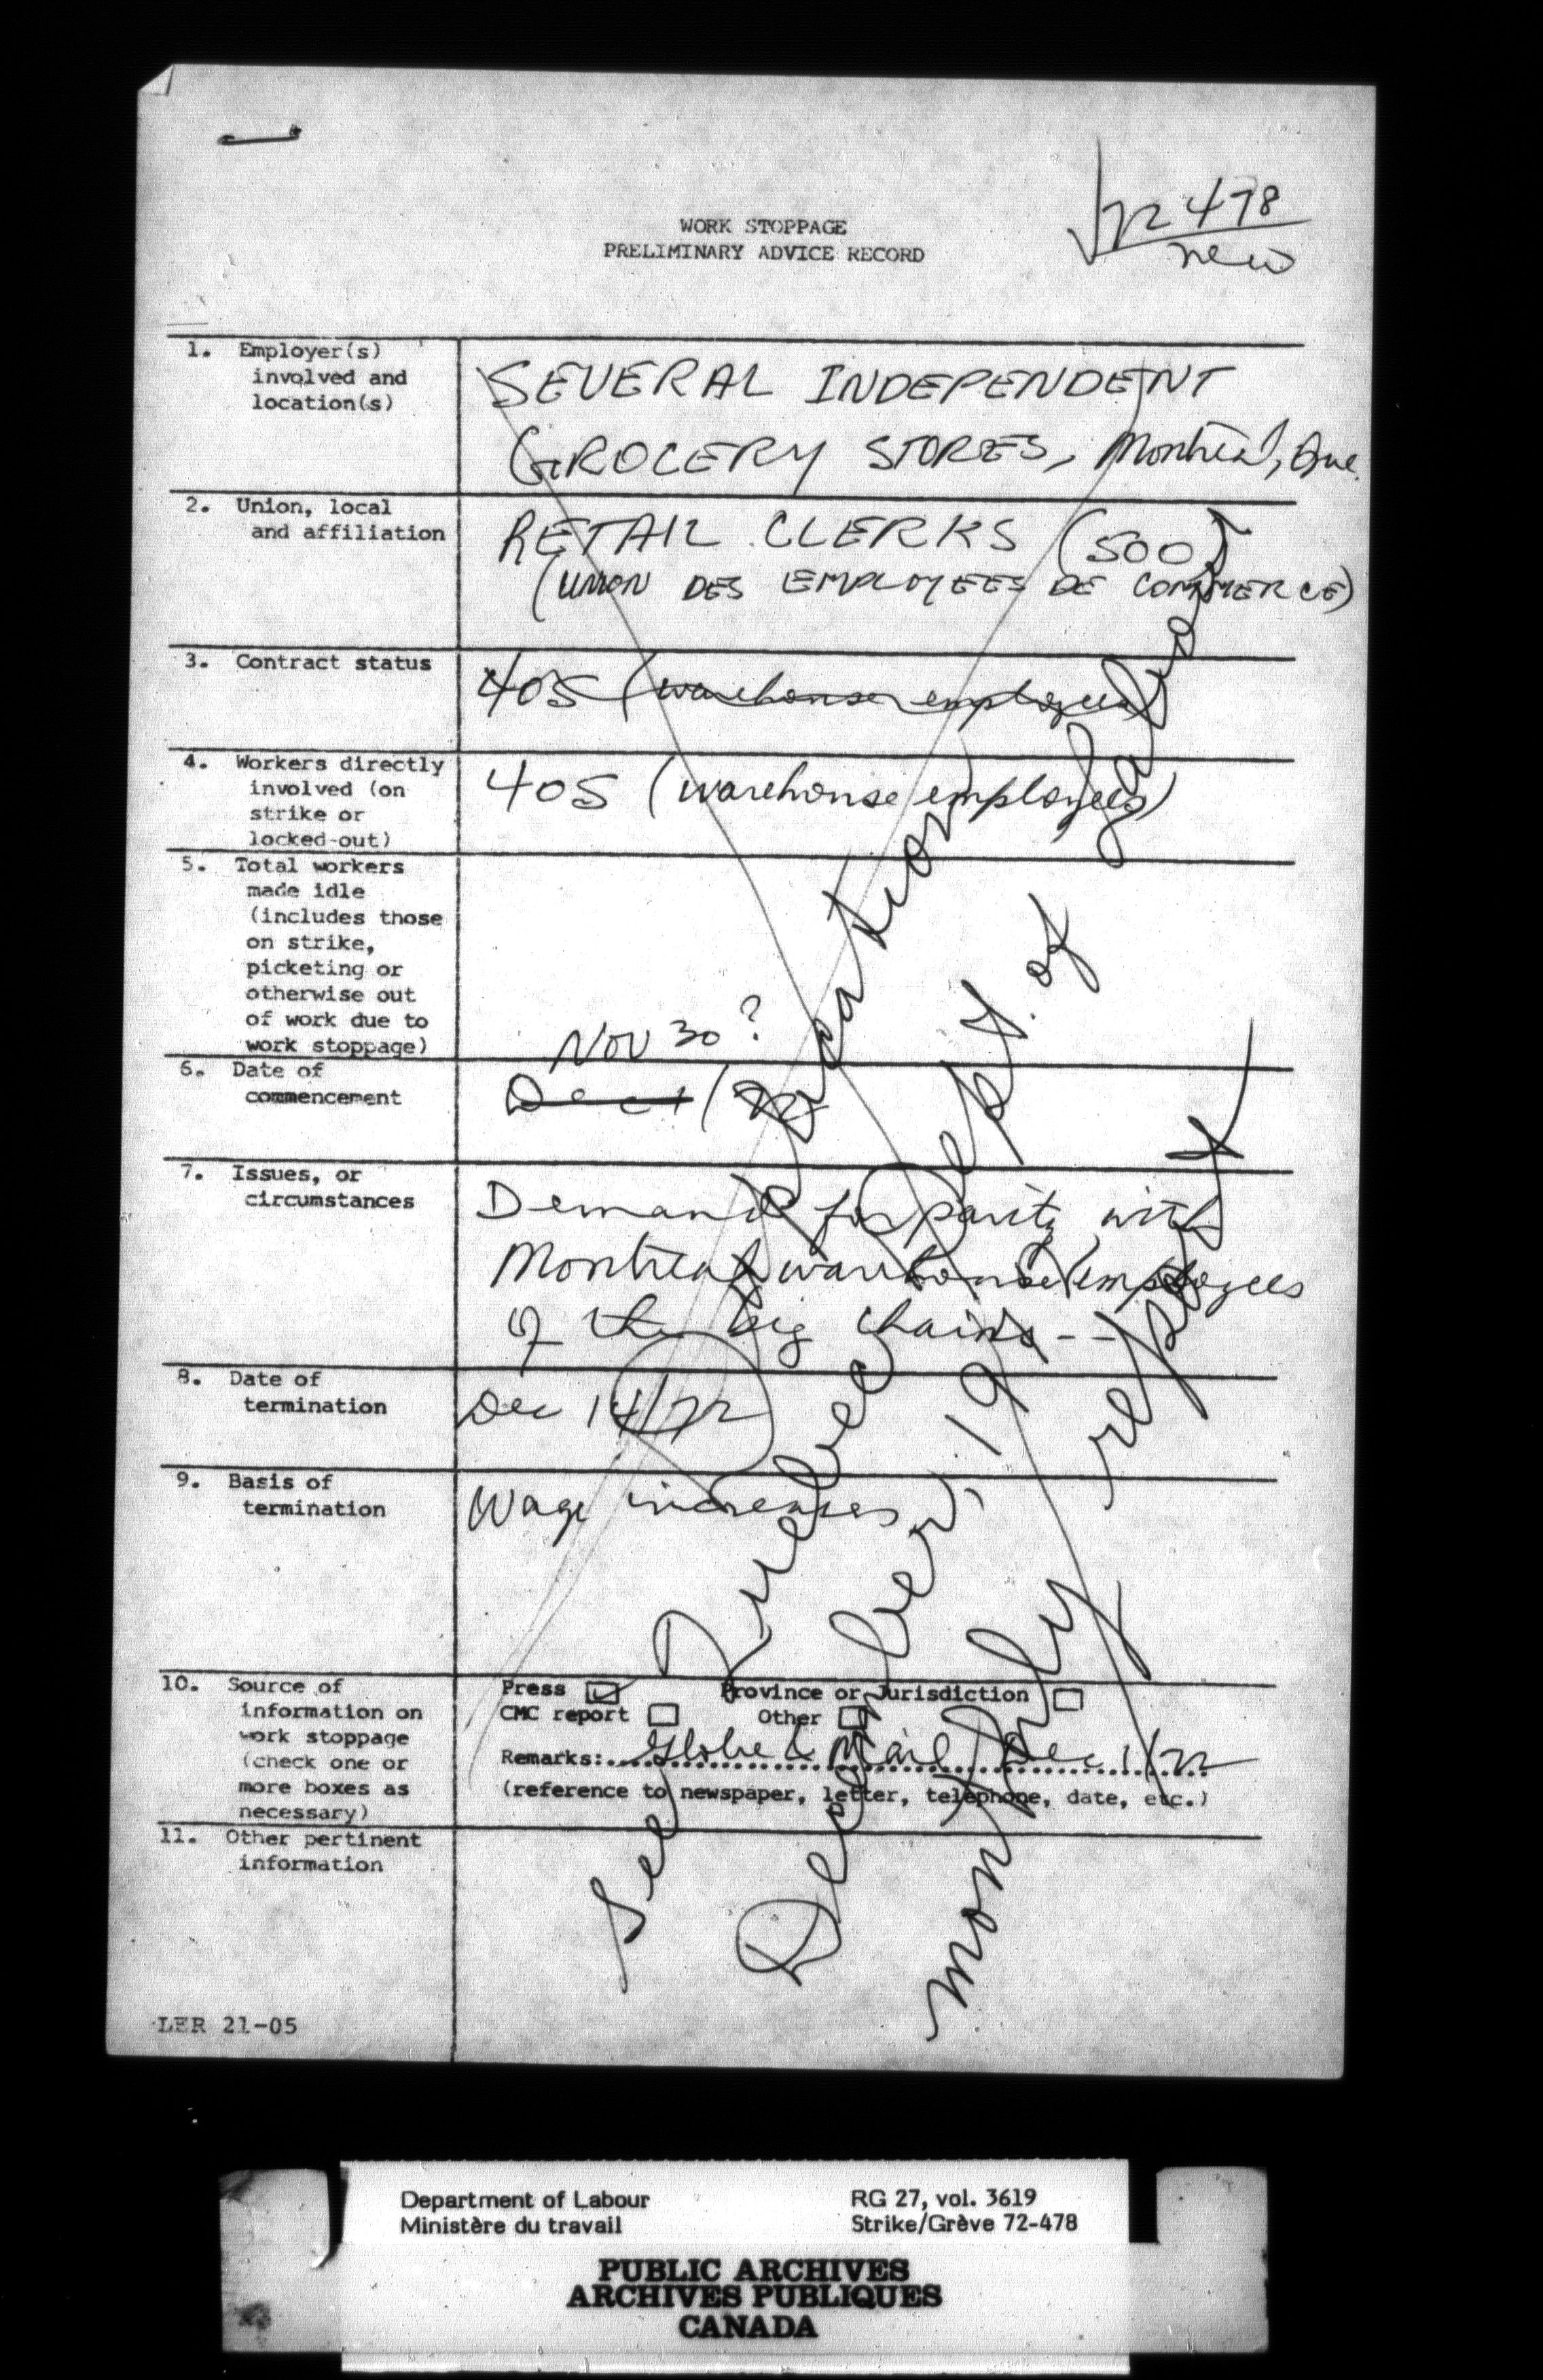 72 478
new
WORK STOPPAGE
PRELIMINARY ADVICE RECORD
1. Employer(s)
involved and
location(s)
SEVERAL INDEPENDENT
GROCERY STORES, Montreal, Que.
2. Union, local
and affiliation
RETAIL CLERKS (500)
(UNION DES EMPLOYEES DE COMMERCE)
3. Contract status
405 (warehouse employees)
4. Workers directly
involved (on
strike or
locked-out)
405 (warehouse employees)
5. Total workers
made idle
(includes those
on strike,
picketing or
otherwise out
of work due to
work stoppage)
NOV 30?
6. Date of
commencement
Dec 1/72
7. Issues, or
circumstances
Demand for parity with
Montreal warehouse employees
of the big chains --
8. Date of
termination
Dec 14/72
9. Basis of
termination
Wage increases
10. Source of
information on
work stoppage
(check one or
more boxes as
necessary)
Press Province or Jurisdiction
CMC report Other
Remarks: Globe & Mail Dec 1/72
(reference to newspaper, letter, telephone, date, etc.)
11. Other pertinent
information
See Quebec publication
December, 19 Dept. of Labour
monthly report
LER 21-05
Department of Labour RG 27, vol. 3619
Ministère du travail Strike/Grève 72-478
PUBLIC ARCHIVES
ARCHIVES PUBLIQUES
CANADA